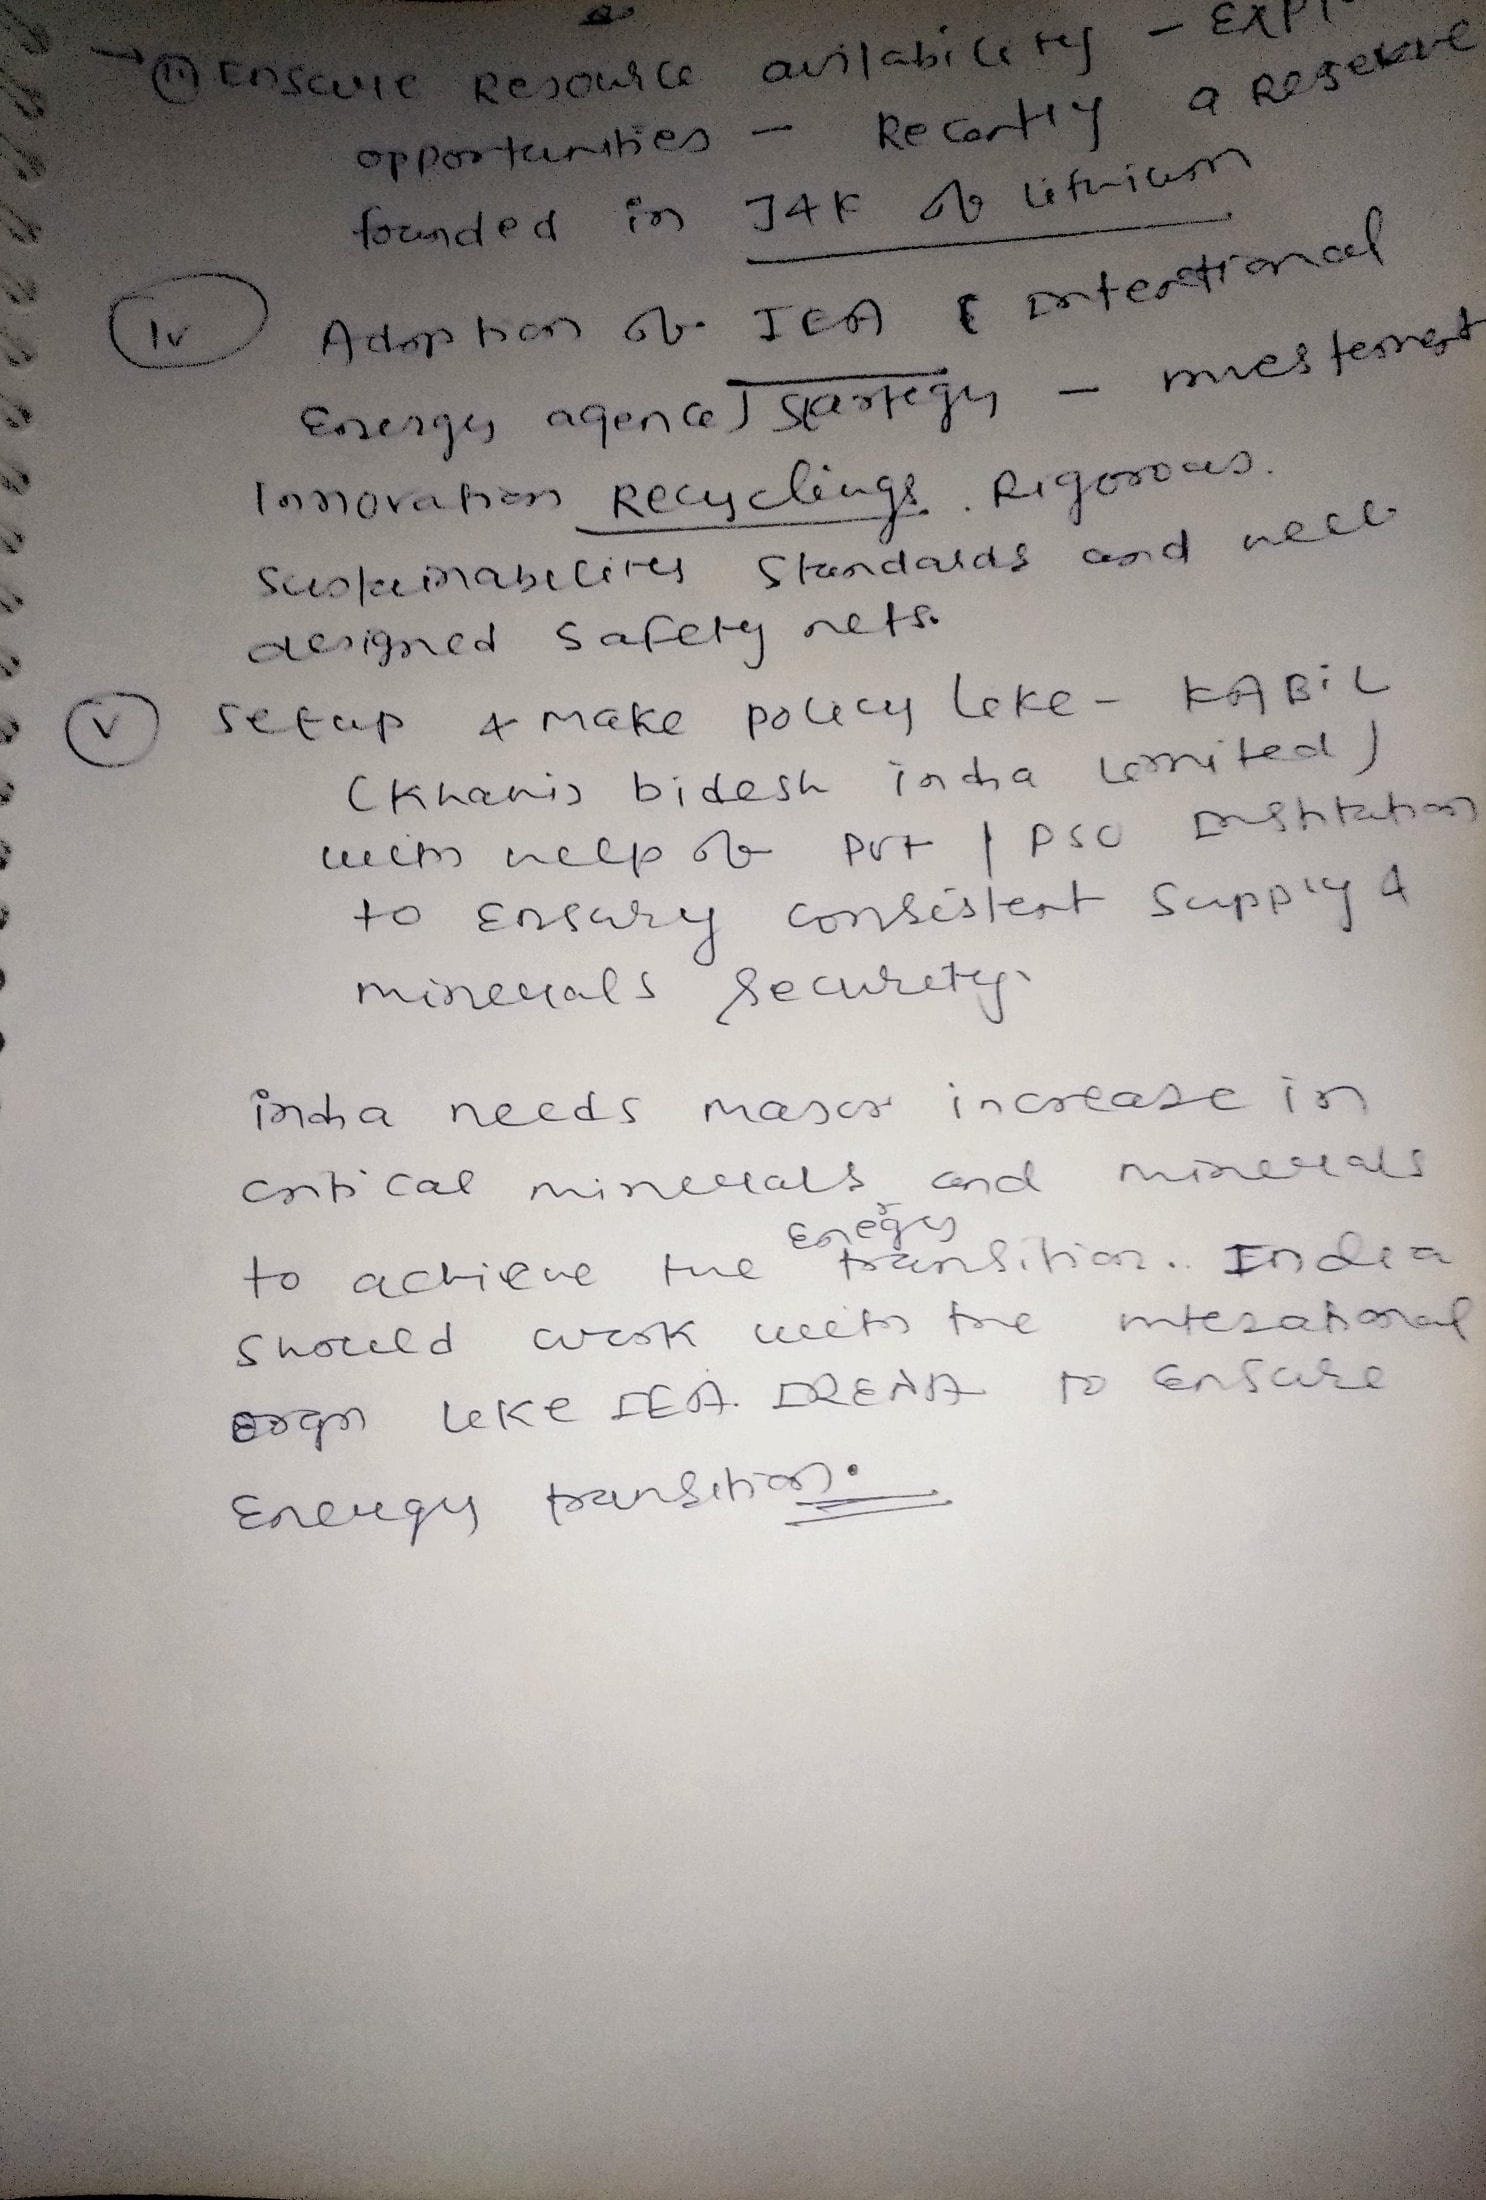 → (iii) Ensure Resource avilability - Expl
opportunities - Recently a Reserve
founded in J&K of lithium
(iv) Adoption of IEA ( Interational
Energy agence) Startegy - investement
Innovation Recyclings. Rigorous.
Sustainability Standards and well
designed safety nets.
(v) setup & make policy like - KABIL
(Khanij bidesh india limited)
with help of Pvt / PSU Institution
to Ensury consistent Supply &
minerals Security.
india needs major increase in
critical minerals and minerals
Energy
to achieve the transition.. India
Should work with the interational
orgn like IEA. IRENA to Ensure
Energy transition.